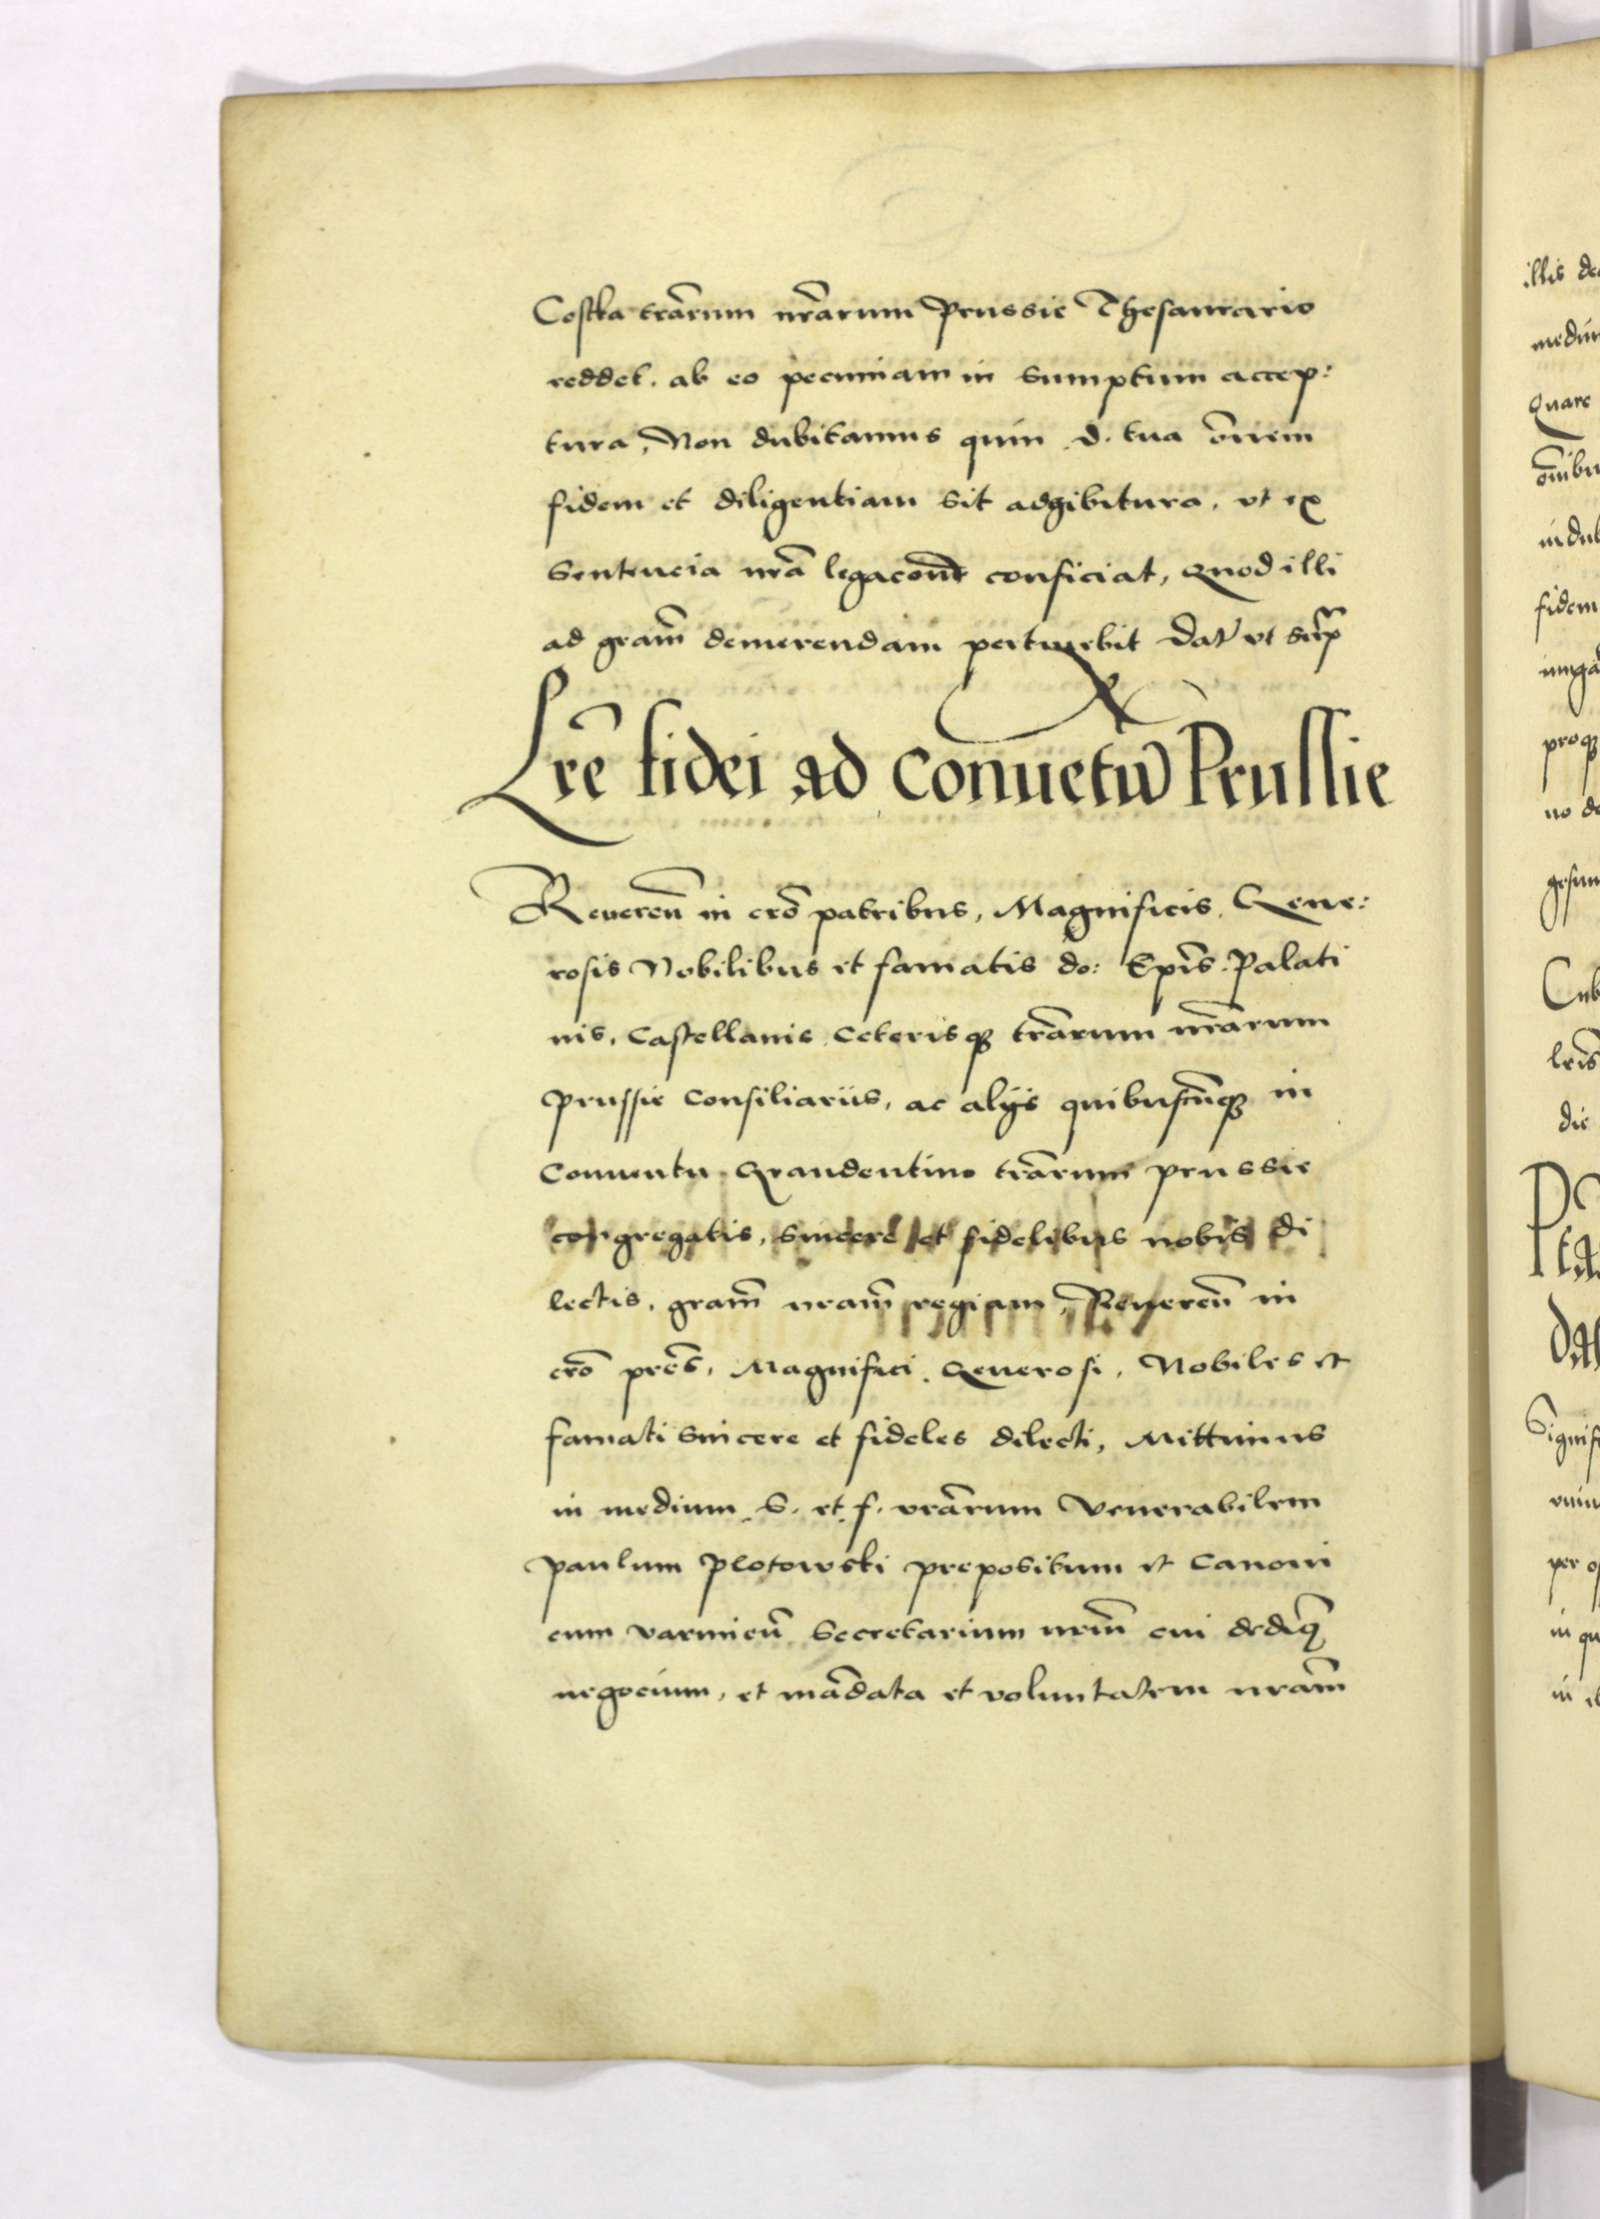 Costka trãrum nrãrum Prussie Thesaurario
reddet. ab eo pecuniam in sumptum accep:
tura, Non dubitamus quin d. tua õnem
fidem et diligentiam sit adhibitura, vt ex
sentencia nrã legacõne conficiat, Quod illi
ad grãm demerendam pertinebit Dat vt supr
Lrẽ fidei ad Conuẽtũ Prussie
Reuereñ in crõ patribus, Magnificis, Gene:
rosis Nobilibus et famatis do: Epĩs. Palati
nis, Castellanis Ceterisqȝ trãrum nrãrum
Prussie Consiliariis, ac alÿs quibuscũqȝ in
Conuentu Graudentino trãrum prussie
congregatis, sincere et fidelibus nobis di
lectis, grãm nrãm regiam, Reuereñ in
crõ prẽs, Magnifici Generosi, Nobiles et
famati sincere et fideles dilecti, Mittimus
in medium S. et f. vrãrum Venerabilem
Paulum Plotowski prepositum et Canoni
cum varmieñ Secretarium nrm̃ cui dedimq̃
negocium, et mãdata et voluntatem nrãm
illis
Quare
fidem
no
die
in